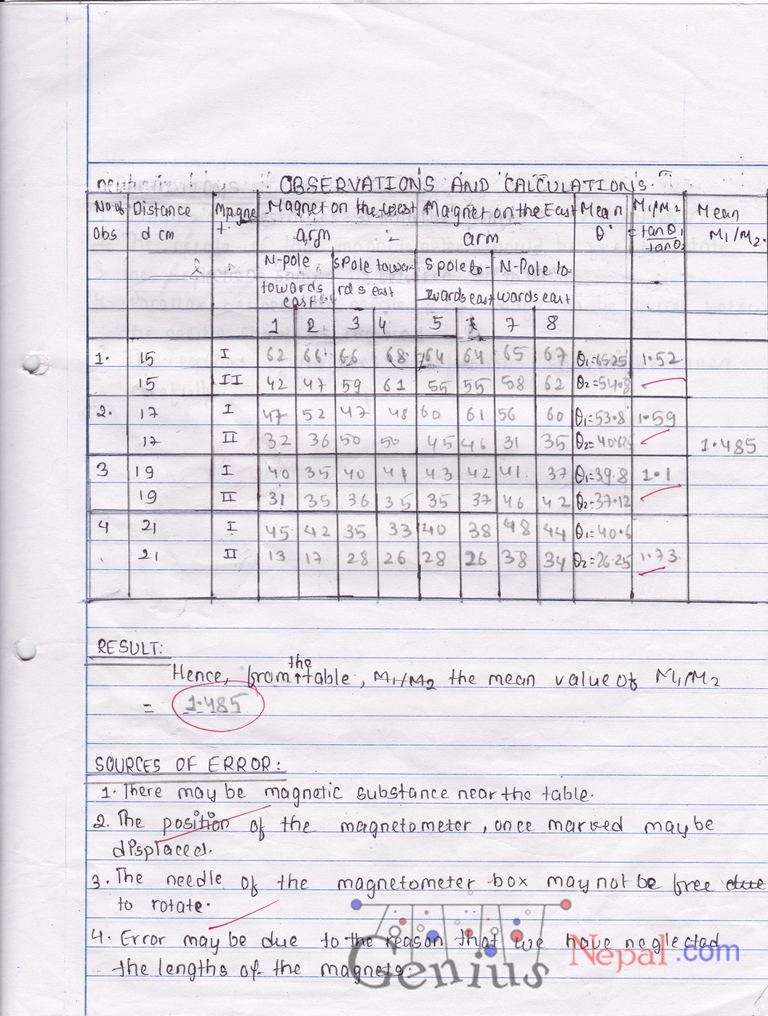 OBSERVATIONS AND CALCULATIONS.
No of Obs Distance d cm Magnet Magnet on the West arm Magnet on the East arm Mean θ° M1/M2 = tanθ1/tanθ2 Mean M1/M2.
N-pole towards east S pole towards east S pole towards east N-Pole towards east
1 2 3 4 5 6 7 8
1. 15 I 62 66 66 68 64 64 65 67 θ1=65.25 1.52
15 II 42 47 59 61 55 55 58 62 θ2=54.8
2. 17 I 47 52 47 48 60 61 56 60 θ1=53.8 1.59
17 II 32 36 50 50 45 46 31 35 θ2=40.625 1.485
3 19 I 40 35 40 41 43 42 41 37 θ1=39.8 1.1
19 II 31 35 36 35 35 37 46 42 θ2=37.12
4 21 I 45 42 35 33 40 38 48 44 θ1=40.6
21 II 13 17 28 26 28 26 38 34 θ2=26.25 1.73
RESULT:
Hence, from the table, M1/M2 the mean value of M1/M2
= 1.485
SOURCES OF ERROR:
1. There may be magnetic substance near the table.
2. The position of the magnetometer, once marked may be
displaced.
3. The needle of the magnetometer box may not be free due
to rotate.
4. Error may be due to the reason that we have neglected
the lengths of the magnets.
Genius Nepal.com